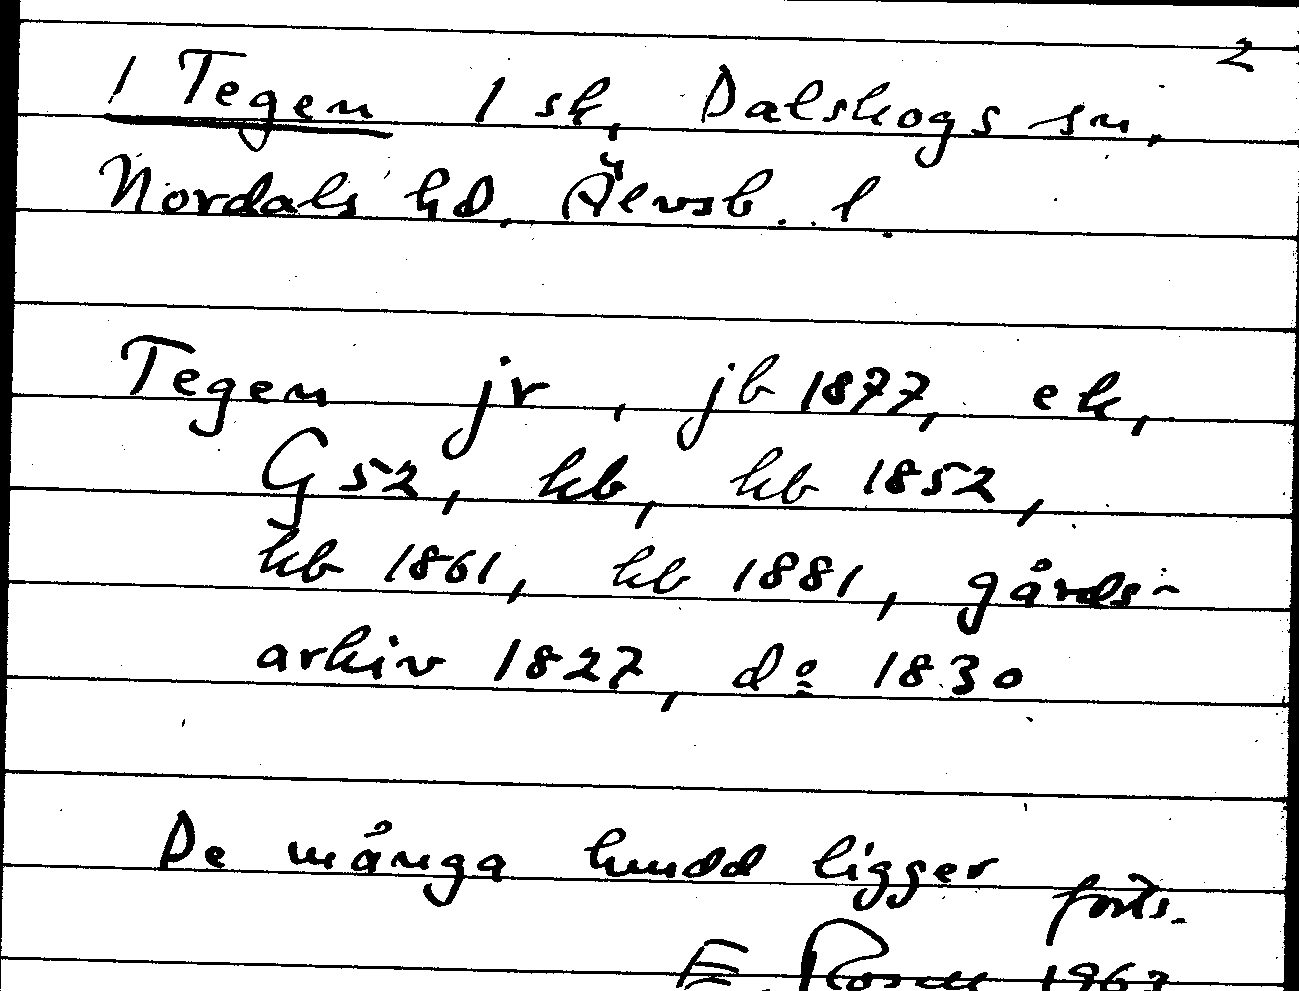 2
/ Tegen 1 sk, Dalskogs sn,
Nordals hd, Älvsb. l.
Tegen jr, jb 1877, ek,
G 52, kb, hb 1852,
hb 1861, hb 1881, gårds-
arkiv 1827, do 1830
De många hmdd ligger
forts.
E. Rosell 1963